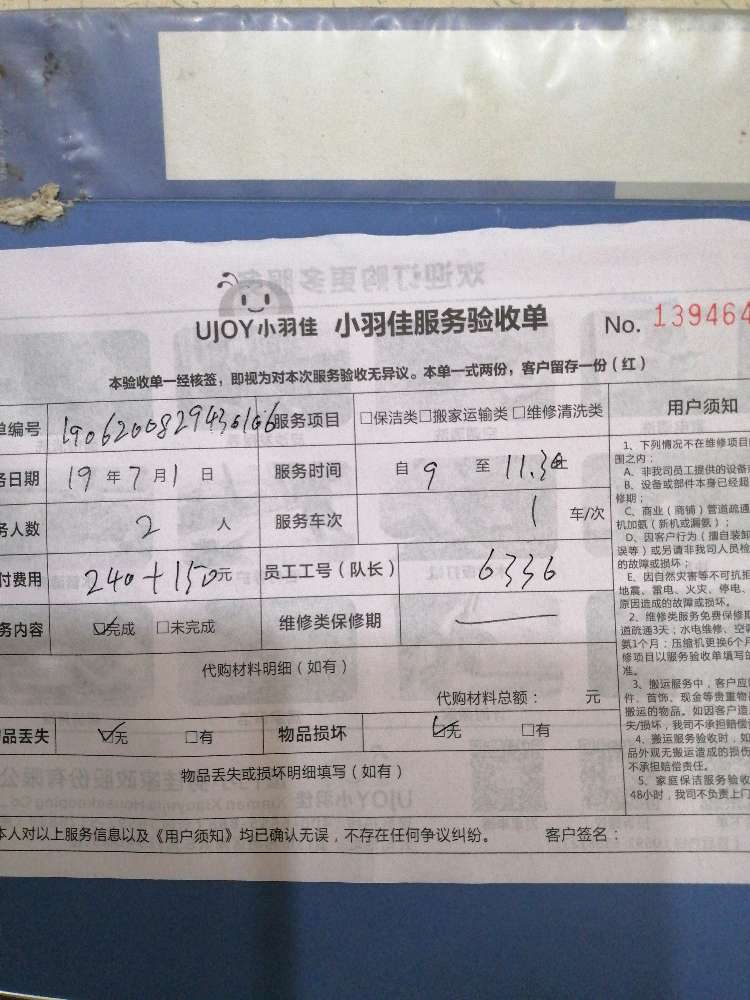 欢迎订购更多服务
UJOY小羽佳 小羽佳服务验收单 No. 139464
本验收单一经核签，即视为对本次服务验收无异议。本单一式两份，客户留存一份（红）
单编号 服务项目 □保洁类□搬家运输类 □维修清洗类 用户须知
务日期 19年7月1日 服务时间 自9至11.30
务人数 2人 服务车次 1车/次
付费用 240+150元 员工工号（队长） 6336
务内容 ☑完成 □未完成 维修类保修期 —
代购材料明细（如有）
代购材料总额： 元
品丢失 ☑无 □有 物品损坏 ☑无 □有
物品丢失或损坏明细填写（如有）
本人对以上服务信息以及《用户须知》均已确认无误，不存在任何争议纠纷。 客户签名：
1、下列情况不在维修项目
围之内：
A、非我司员工提供的设备
B、设备或部件本身已经超
修期；
C、商业（商铺）管道疏通
机加氨（新机或漏氨）；
D、因客户行为（擅自装卸
误等）或另请非我司人员检
的故障或损坏；
E、因自然灾害等不可抗拒
地震、雷电、火灾、停电、
原因造成的故障或损坏。
2、维修类服务免费保修期
道疏通3天；水电维修、空调
氨1个月；压缩机更换6个月
修项目以服务验收单填写的
准。
3、搬运服务中，客户应
件、首饰、现金等贵重物
搬运的物品。如因客户造
失/损坏，我司不承担赔偿
4、搬运服务验收时，如
品外观无搬运造成的损伤
不承担赔偿责任。
5、家庭保洁服务验收
48小时，我司不负责上门